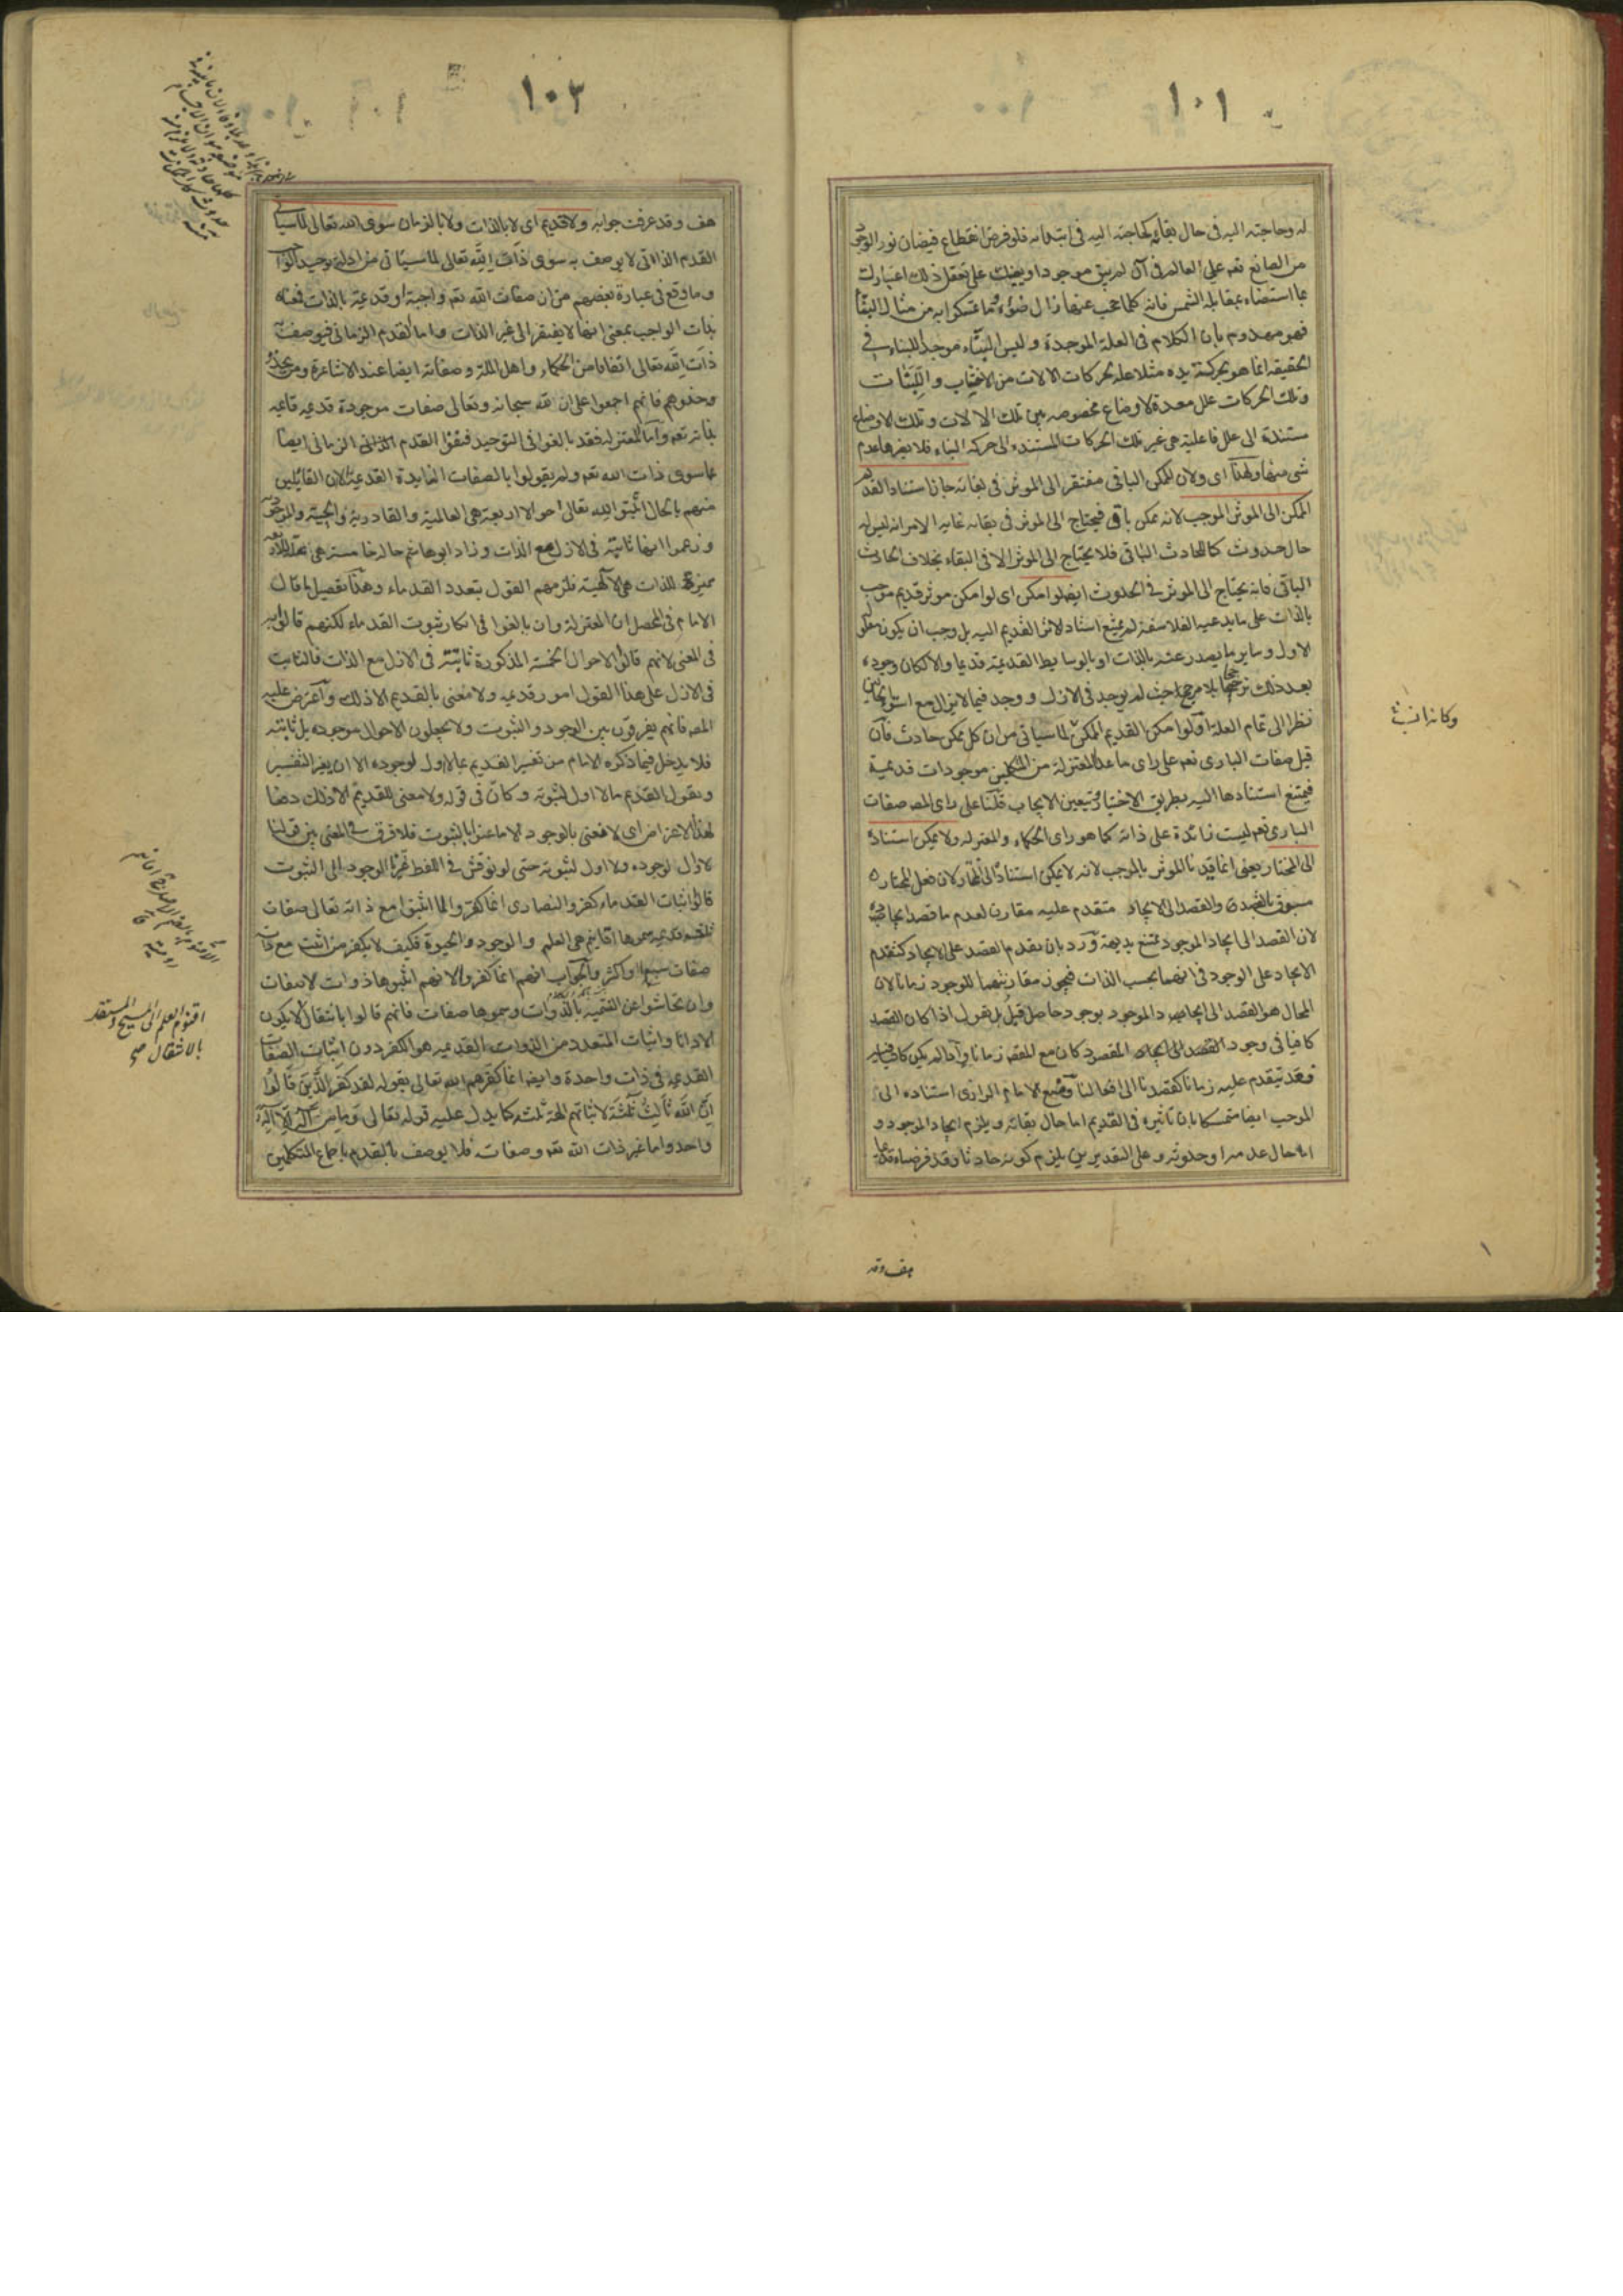 ١٠١
له وحاجته اليه فى حال بقائه كحاجته اليه فى ابتدائه فلو فرض انقطاع فيضان نور الوجود
من الصانع تعم على العالم فى آن لم يبق موجودا وينبئك على تعقل ذلك اعتبارك
بما استضاء بمقابلة الشمس فانه كلما حجب عنها زال ضوؤه وما تمسكوا به من مثال البناء
فهو مهدوم بان الكلام فى العلة الموجدة وليس البناء موجدا للبناء فى
الحقيقة انما هو بحركة يده مثلا علة لحركات الالات من الاخشاب واللبنات
وتلك الحركات علل معدة لاوضاع مخصوصة بين تلك الالات وتلك الاوضاع
مستندة الى علل فاعلية هى غير تلك الحركات المستندة الى حركة البناء فلا يضرها عدم
شى منها ولهذا اى ولان الممكن الباقى مفتقر الى الموثر فى بقائه جاز استناد القديم
الممكن الى الموثر الموجب لانه ممكن باق فيحتاج الى الموثر فى بقائه غاية الامر انه ليس له
حال حدوث كالحادث الباقى فلا يحتاج الى الموثر الا فى البقاء بخلاف الحادث
الباقى فانه يحتاج الى الموثر فى الحدوث ايضا لو امكن اى لو امكن موثر قديم موجب
بالذات على ما يدعيه الفلاسفة لم يمتنع استناد الاثر القديم اليه بل وجب ان يكون معلوله
الاول وساير ما يصدر عنه بالذات او بالوسايط القديمة قديما والا لكان وجوده
بعد ذلك ترجيحا بلا مرجح حيث لم يوجد فى الازل ووجد فيما لايزال مع استواء الحالين
نظرا الى تمام العلة او لو امكن القديم الممكن لما سياتى من ان كل ممكن حادث فان
قيل صفات البارى تعم على راى ماعدا المعتزلة من المتكلمين موجودات قديمة
فيمتنع استنادها اليه بطريق الاختيار فتعين الايجاب قلنا على راى المص صفات
البارى تعم ليست زائدة على ذاته كما هو راى الحكماء والمعتزلة ولا يمكن استناده
الى المختار يعنى انما قيدنا الموثر بالموجب لانه لا يمكن استناده الى المختار لان فعل المختار
مسبوق بالقصد والقصد الى الايجاد متقدم عليه مقارن لعدم ما قصد ايجاده
لان القصد الى ايجاد الموجود ممتنع بديهة ورد بان تقدم القصد على الايجاد كتقدم
الايجاد على الوجود فى انهما بحسب الذات فيجوز مقارنتهما للوجود زمانا لان
المحال هو القصد الى ايجاد الموجود بوجود حاصل قبل بل نقول اذا كان القصد
كافيا فى وجود القصد الى ايجاد المقصود كان مع القصد زمانا واذا لم يكن كافيا
فقد يتقدم عليه زمانا كقصدنا الى افعالنا ومنع الامام الرازى استناده الى
الموجب ايضا متمسكا بان تاثيره فى القديم اما حال بقائه ويلزم ايجاد الموجود و
اما حال عدمه او حدوثه وعلى التقديرين يلزم كونه حادثا وقد فرضناه قديما
هف وقد
١٠٢
هف وقد عرفت جوابه ولا قديم اى لا بالذات ولا بالزمان سوى الله تعالى لما سياتى
القدم الذاتى لا يوصف به سوى ذات الله تعالى لما سياتى من ادلة توحيد الواجب
وما وقع فى عبارة بعضهم من ان صفات الله تعم واجبة او قديمة بالذات فمعناه
بذات الواجب بمعنى انها لا يفتقر الى غير الذات واما القدم الزمانى فيوصف به
ذات الله تعالى اتفاقا من الحكماء واهل الملة وصفاته ايضا عند الاشاعرة ومن
يحذو حذوهم فانهم اجمعوا على ان لله سبحانه وتعالى صفات موجودة قديمة قائمة
بذاته تعم واما المعتزلة فقد بالغوا فى التوحيد فنفوا القدم الزمانى ايضا
عما سوى ذات الله تعم ولم يقولوا بالصفات الزايدة القديمة الا ان القائلين
منهم بالحال اثبتوا لله تعالى احوالا اربعة هى العالمية والقادرية والحيية والموجودية
وزعموا انها ثابتة فى الازل مع الذات وزاد ابو هاشم حالة خامسة هى علة للاربعة
مميزة للذات هى الالهية فلزمهم القول بتعدد القدماء وهذا تفصيل ما قال
الامام فى المحصل ان المعتزلة وان بالغوا فى انكار ثبوت القدماء لكنهم قالوا به
فى المعنى لانهم قالوا الاحوال الخمسة المذكورة ثابتة فى الازل مع الذات فالثابت
فى الازل على هذا القول امور قديمة ولا معنى بالقديم الا ذلك واعترض عليه
المص فانهم يفرقون بين الوجود والثبوت ولا يجعلون الاحوال موجودة بل ثابتة
فلا يدخل فيما ذكره الامام من تفسير القديم بما لا اول لوجوده الا ان يغير التفسير
ويقول القديم ما لا اول لثبوته وكان فى قوله ولا معنى للقديم الا ذلك دفعا
لهذا الاعتراض اى لا نعنى بالوجود الا ما عنوا بالثبوت فلا فرق فى المعنى بين قولنا
لا اول لوجوده ولا اول لثبوته حتى لو نوقش فى اللفظ غيرنا الوجود الى الثبوت
قالوا اثبات القدماء كفر والنصارى انما كفروا لما اثبتوا مع ذاته تعالى صفات
ثلثة قديمة سموها اقانيم هى العلم والوجود والحيوة فكيف لا يكفر من اثبت مع ذاته
صفات سبعا او اكثر والجواب انهم انما كفروا لانهم اثبتوها ذوات لا صفات
وان تحاشوا عن التسمية بالذوات وسموها صفات فانهم قالوا بانتقال لا يكون
الا ذاتا واثبات المتعدد من الذوات القديمة هو الكفر دون اثبات الصفات
القديمة فى ذات واحدة وايضا انما كفرهم الله تعالى بقوله لقد كفر الذين قالوا
ان الله ثالث ثلثة لاثباتهم الهة ثلثة كما يدل عليه قوله تعالى وما من اله الا اله
واحد واما غير ذات الله تعم وصفاته فلا يوصف بالقدم باجماع المتكلمين
اقنوم العلم الى المسيح والمستقل
بالانتقال صح